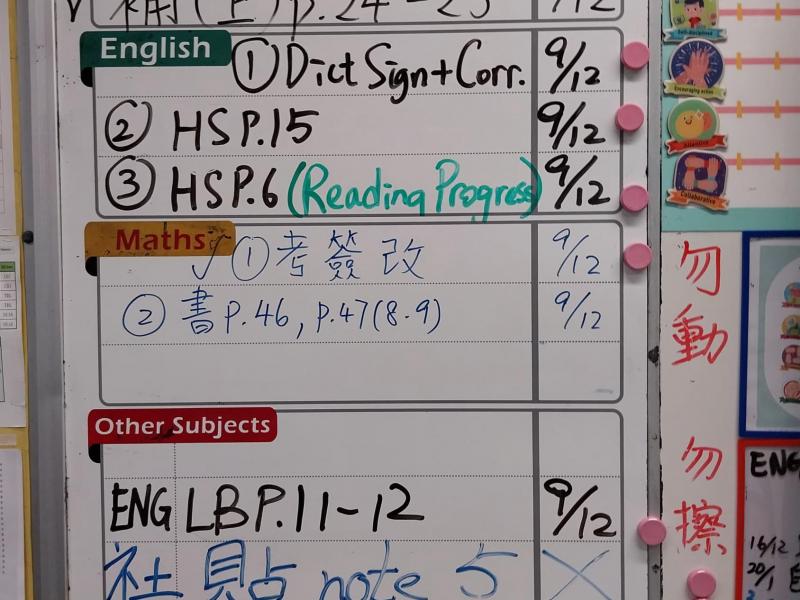 補(上)p.24-25 9/12
English ① Dict Sign+Corr. 9/12
② HS P.15 9/12
③ HS P.6 (Reading Progress) 9/12
Maths ✓ ① 考簽改 9/12
② 書 P.46, p.47(8.9) 9/12
Other Subjects
ENG LB P.11-12 9/12
社 貼 note 5 ×
Self-disciplined
Encouraging action
Attentive
Collaborative
勿動
勿擦
ENG
16/12
20/1